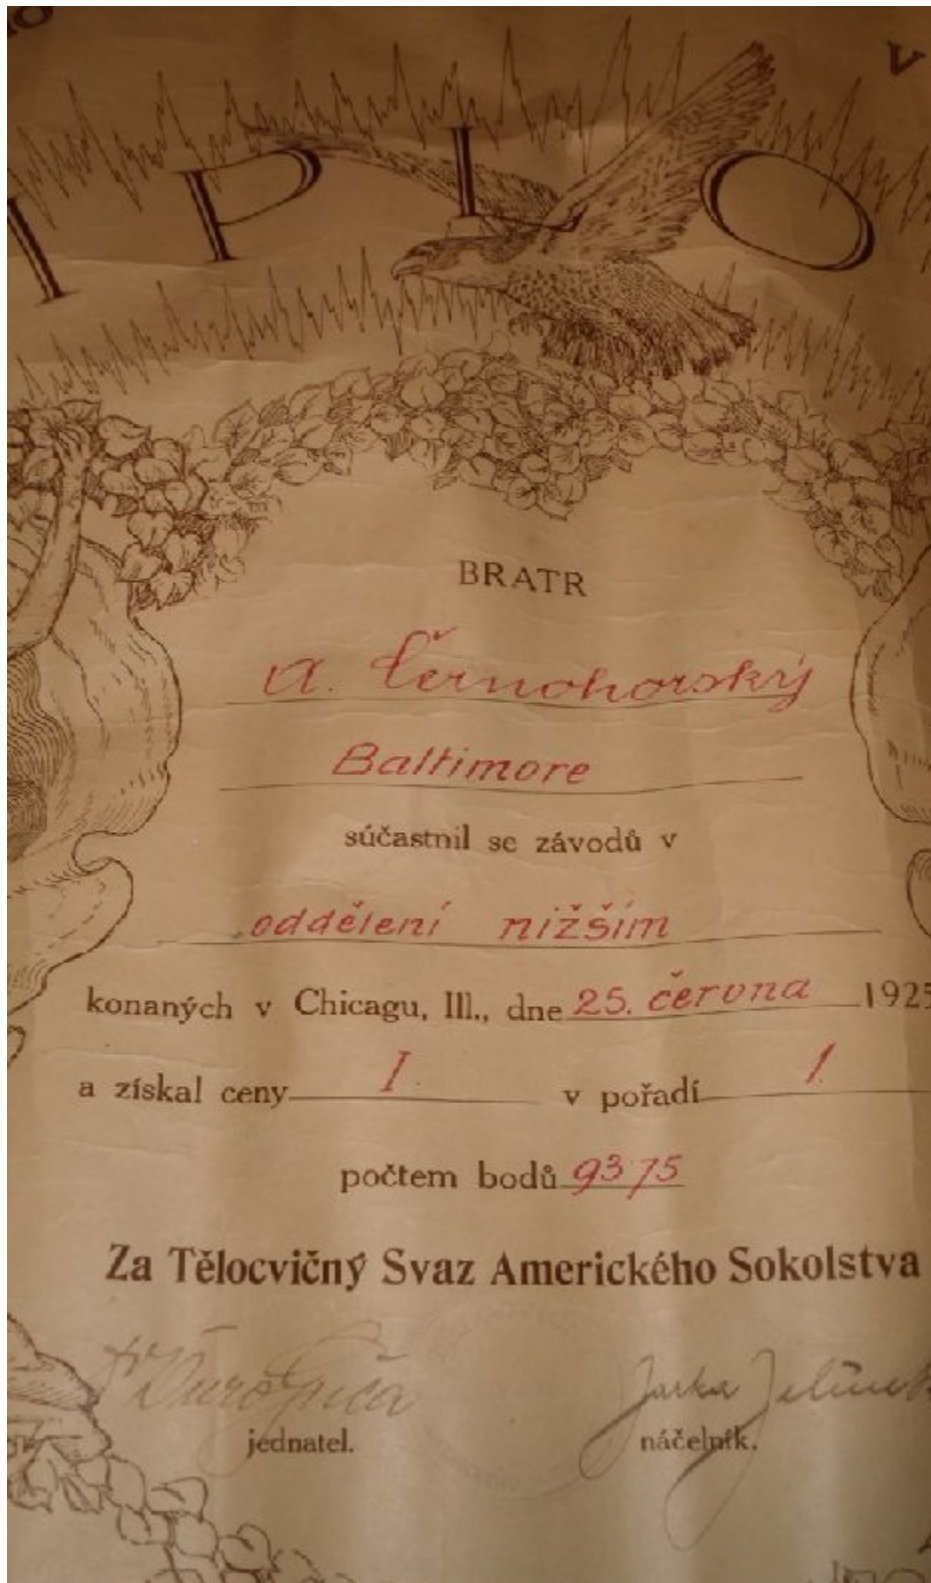 v
IPLO
BRATR
A. Černohorský
Baltimore
súčastnil se závodů v
oddělení nižším
konaných v Chicagu, Ill., dne 25. června 1925
a získal ceny I. v pořadí 1.
počtem bodů 93.75
Za Tělocvičný Svaz Amerického Sokolstva
Jarka Jelínek
jednatel. náčelník.